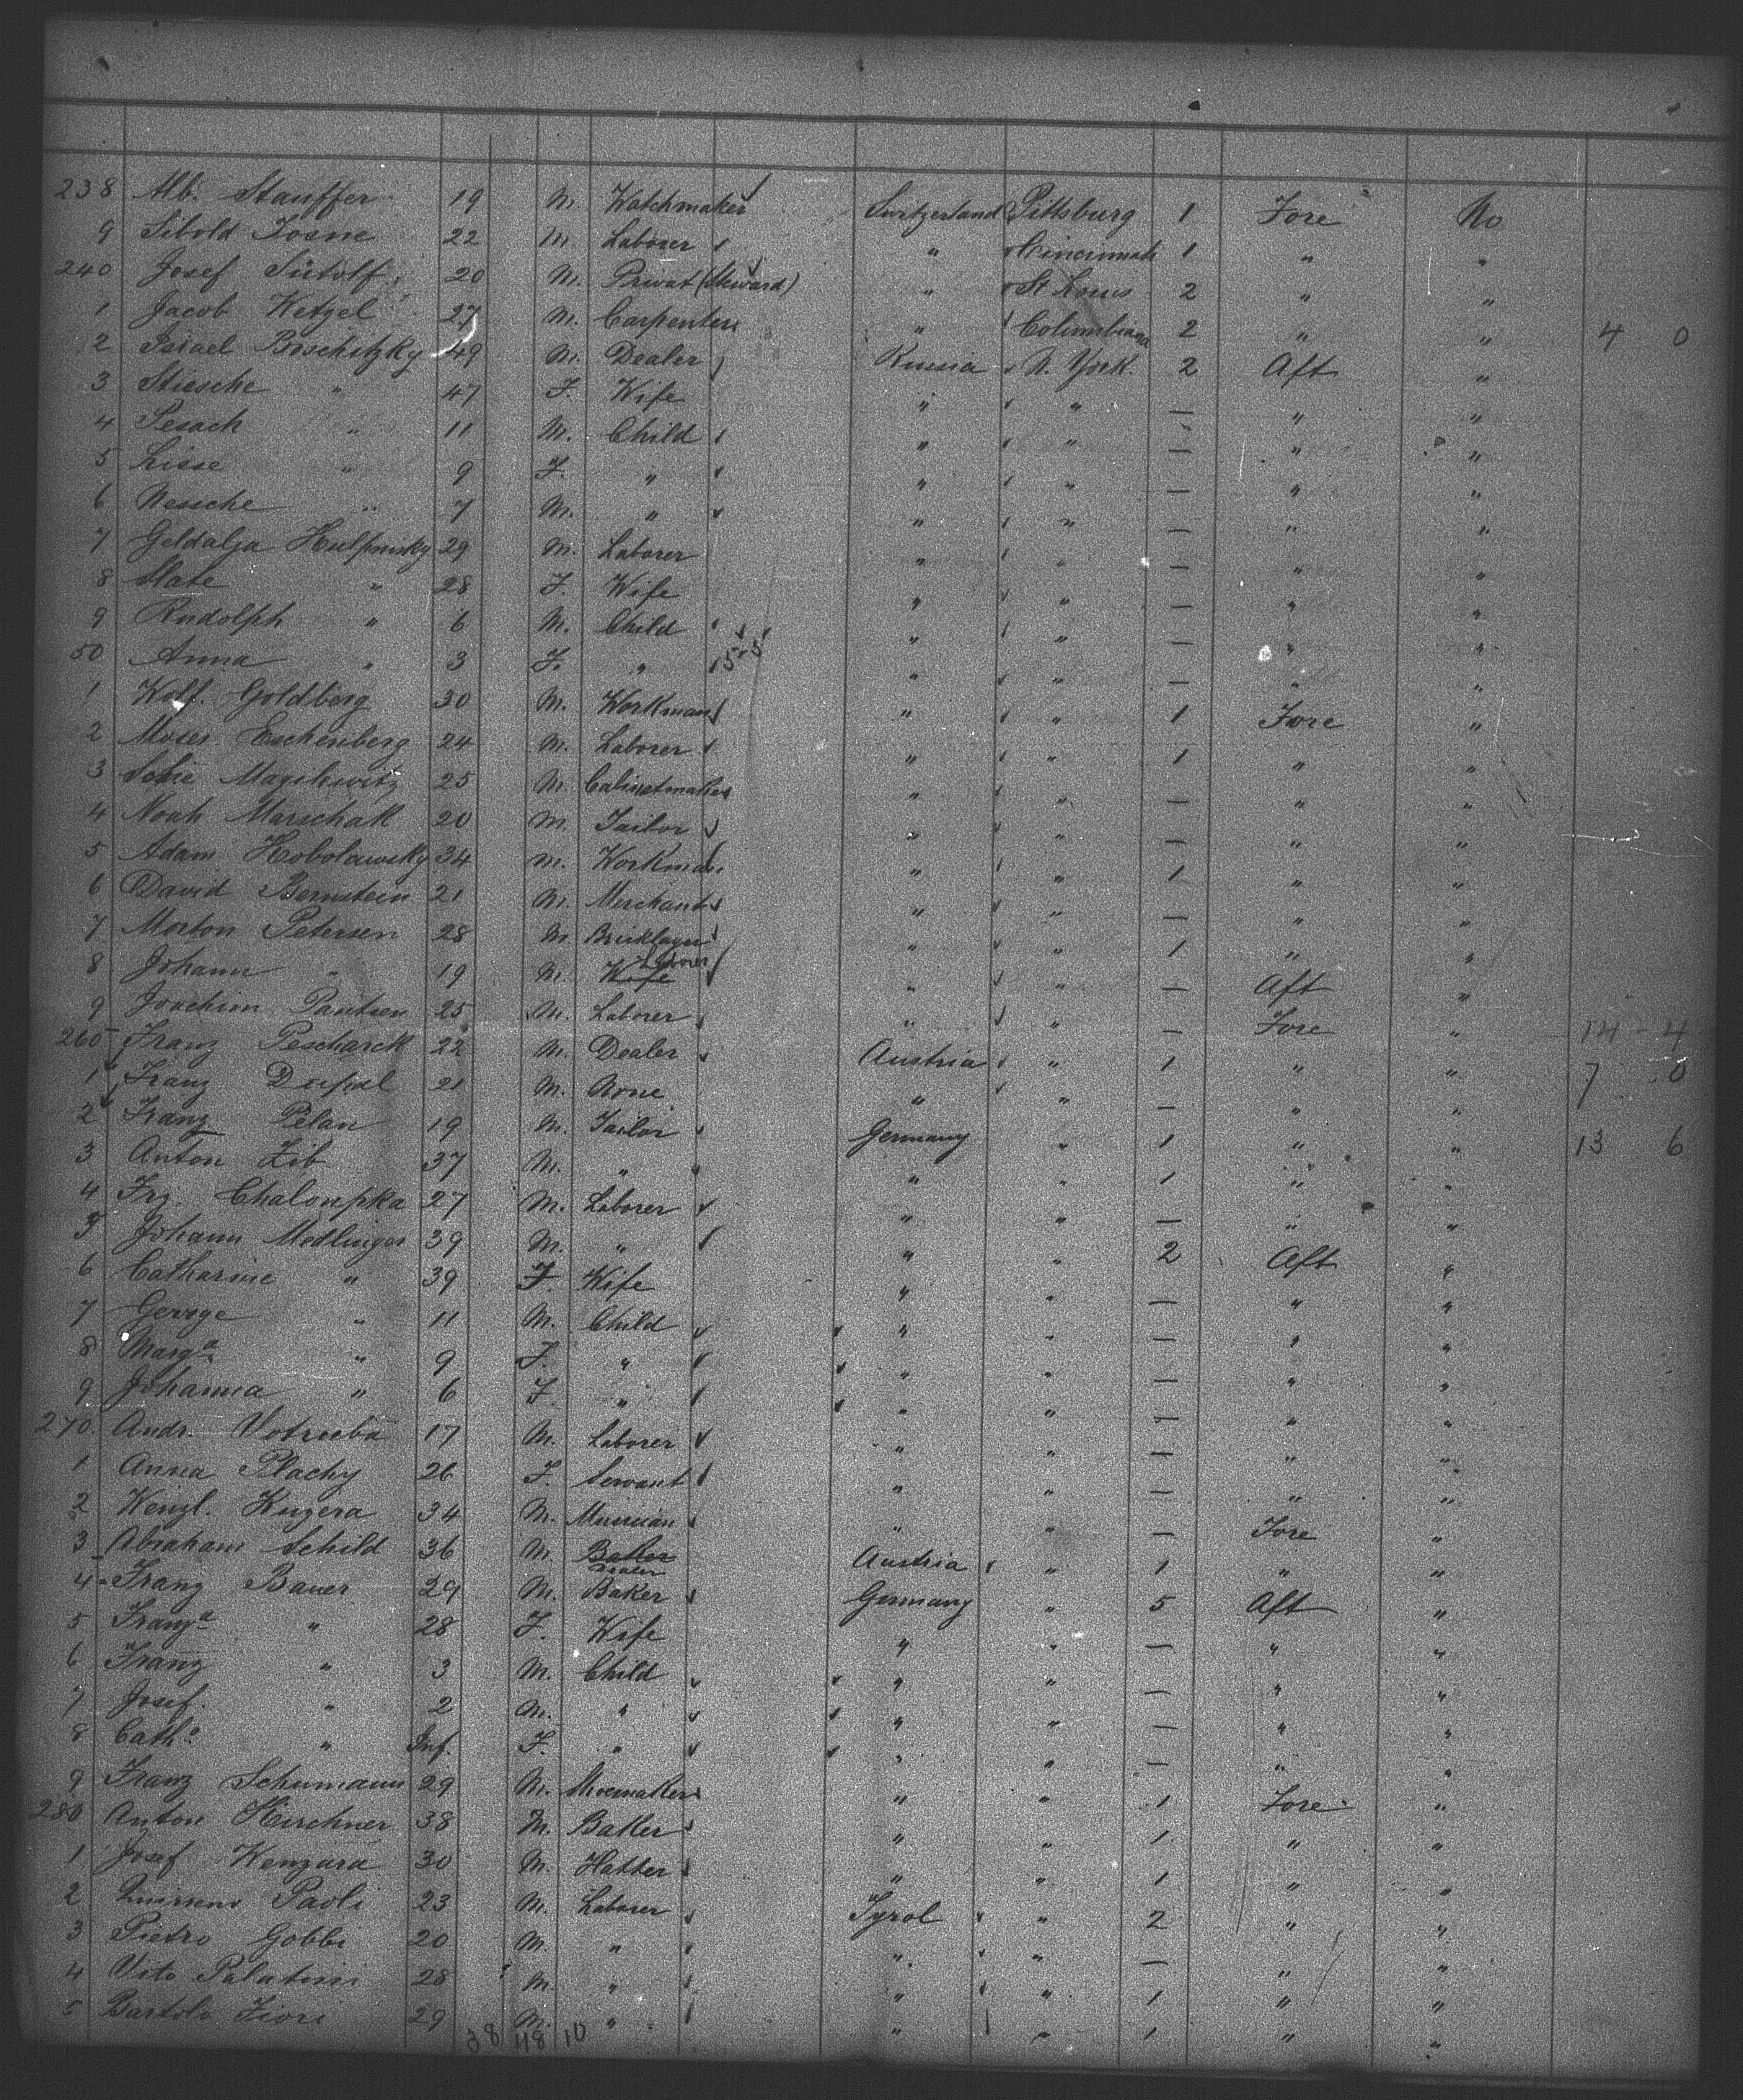 238 Alb. Stauffer 19 M. Watchmaker Switzerland Pittsburg 1 Fore No
9 Sibold Josne 22 M. Laborer " Cincinnati 1 " "
240 Josef Sütolf 20 M. Privat (Steward) " St Louis 2 " "
1 Jacob Wetzel 27 M. Carpenter " Columbiana 2 " " 4 0
2 Israel Boschitzky 49 M. Dealer Russia N. York. 2 Aft "
3 Stiesche " 47 F. Wife " " — " "
4 Pesach " 11 M. Child " " — " "
5 Lisse " 9 F. " " " — " "
6 Nessche " 7 M. " " " — " "
7 Geldalja Hulpnisky 29 M. Laborer " " — " "
8 Slate " 28 F. Wife " " — " "
9 Rudolph " 6 M. Child " " — " "
50 Anna " 3 F. " 5 5 " " — " "
1 Wolf. Goldberg 30 M. Workman " " 1 Fore "
2 Moses Eschenberg 24 M. Laborer " " 1 " "
3 Magilewitz 25 M. Cabinetmaker " " — " "
4 Noah Marschak 20 M. Tailor " " — " "
5 Adam Hobolawsky 34 M. Workman " " 1 " "
6 David Bernstein 21 M. Merchant " " — " "
7 Morton Petersen 28 M. Bricklayer " " 1 " "
8 Johann " 19 M. Wife Laborer " " — Aft "
9 Joachim Pautsen 25 M. Laborer " " — Fore " 14 - 4
260 Franz Pescharck 22 M. Dealer Austria " 1 " " 7 0
1 Franz 21 M. None " " — " "
2 Franz Pelan 19 M. Tailor Germany " 1 " " 13 6
3 Anton Zib 37 M. " " " 1 " "
4 Frz. Chaloupka 27 M. Laborer " " — " "
5 Johann Medlinger 39 M. " " " 2 Aft "
6 Catharine " 39 F. Wife " " — " "
7 George " 11 M. Child " " — " "
8 Marga " 9 F. " " " — " "
9 Johanna " 6 F. " " " — " "
270 Andr. Votrueba 17 M. Laborer " " — " "
1 Anna Plachy 26 F. Servant " " — " "
2 Wenzl. Kuzera 34 M. Musician " " — Fore "
3 Abraham Schild 36 M. Baker Dealer Austria " 1 " "
4 Franz Bauer 29 M. Baker Germany " 5 Aft "
5 Franza " 28 F. Wife " " — " "
6 Franz " 3 M. Child " " — " "
7 Josef. " 2 M. " " " — " "
8 Catha " Inf. F. " " " — " "
9 Franz Schumann 29 M. Shoemaker " " 1 Fore "
280 Anton Hirchner 38 M. Baker " " 1 " "
1 Josef Wenzura 30 M. Hatter " " 1 " "
2 Paoli 23 M. Laborer Tyrol " 2 " "
3 Pietro Gobbi 20 M. " " " — " "
4 Vito Palatini 28 M. " " " 1 " "
5 Bartolo Fiori 29 M. " " " 1 " "
38 48 10